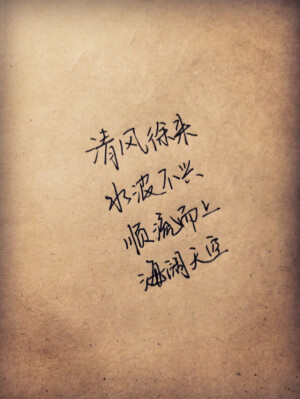 清风徐来
水波不兴
顺流而上
海阔天空